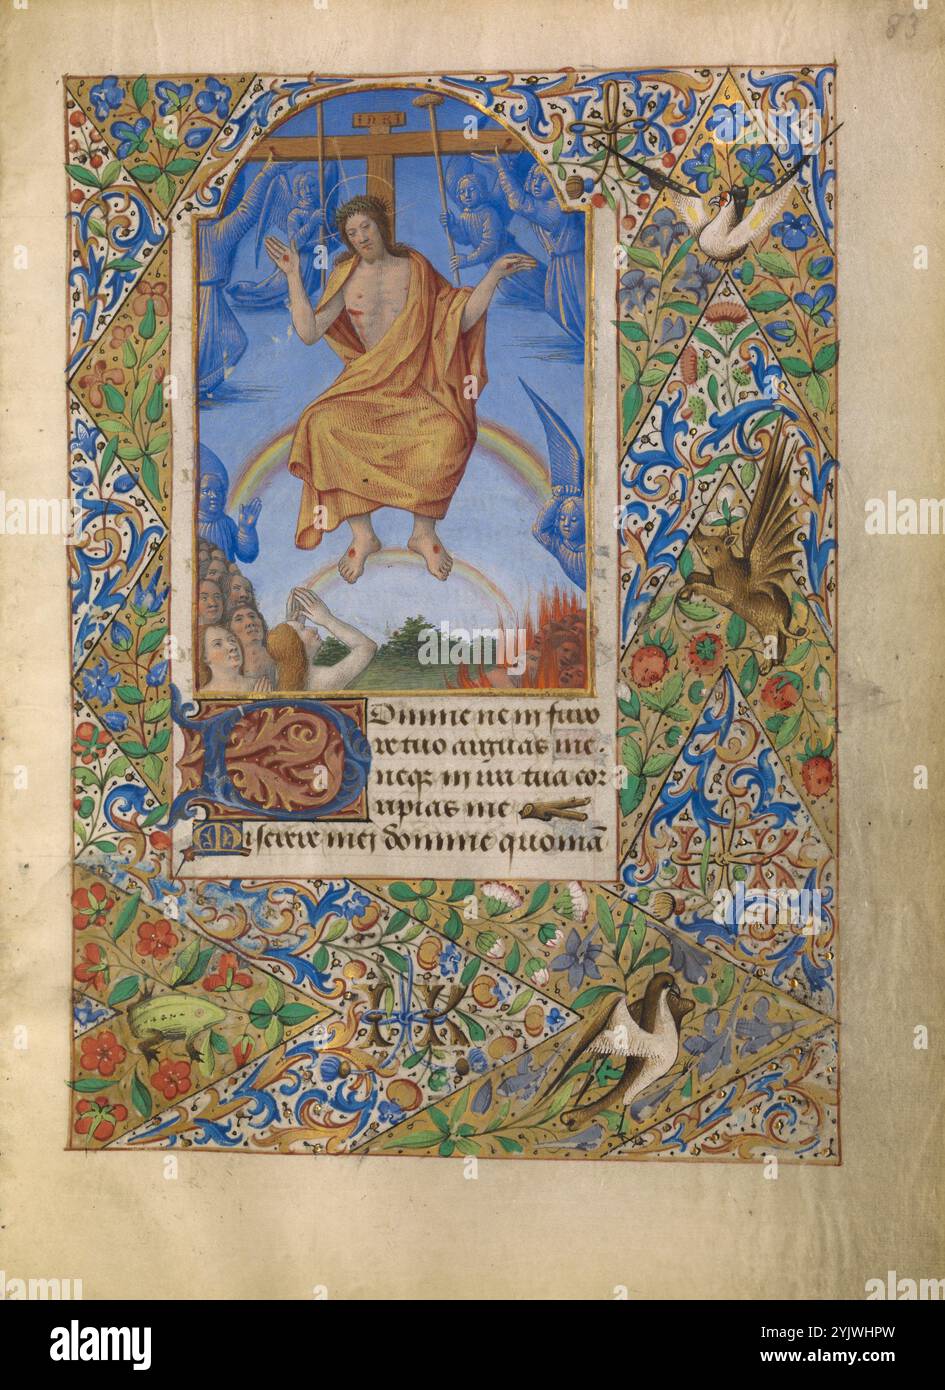 83
INRI
Domine ne in furo
re tuo arguas me.
neqꝫ in ira tua cor
ripias me
Miserere mei domine quoniā
alamy
Image ID: 2YJWHPW
www.alamy.com